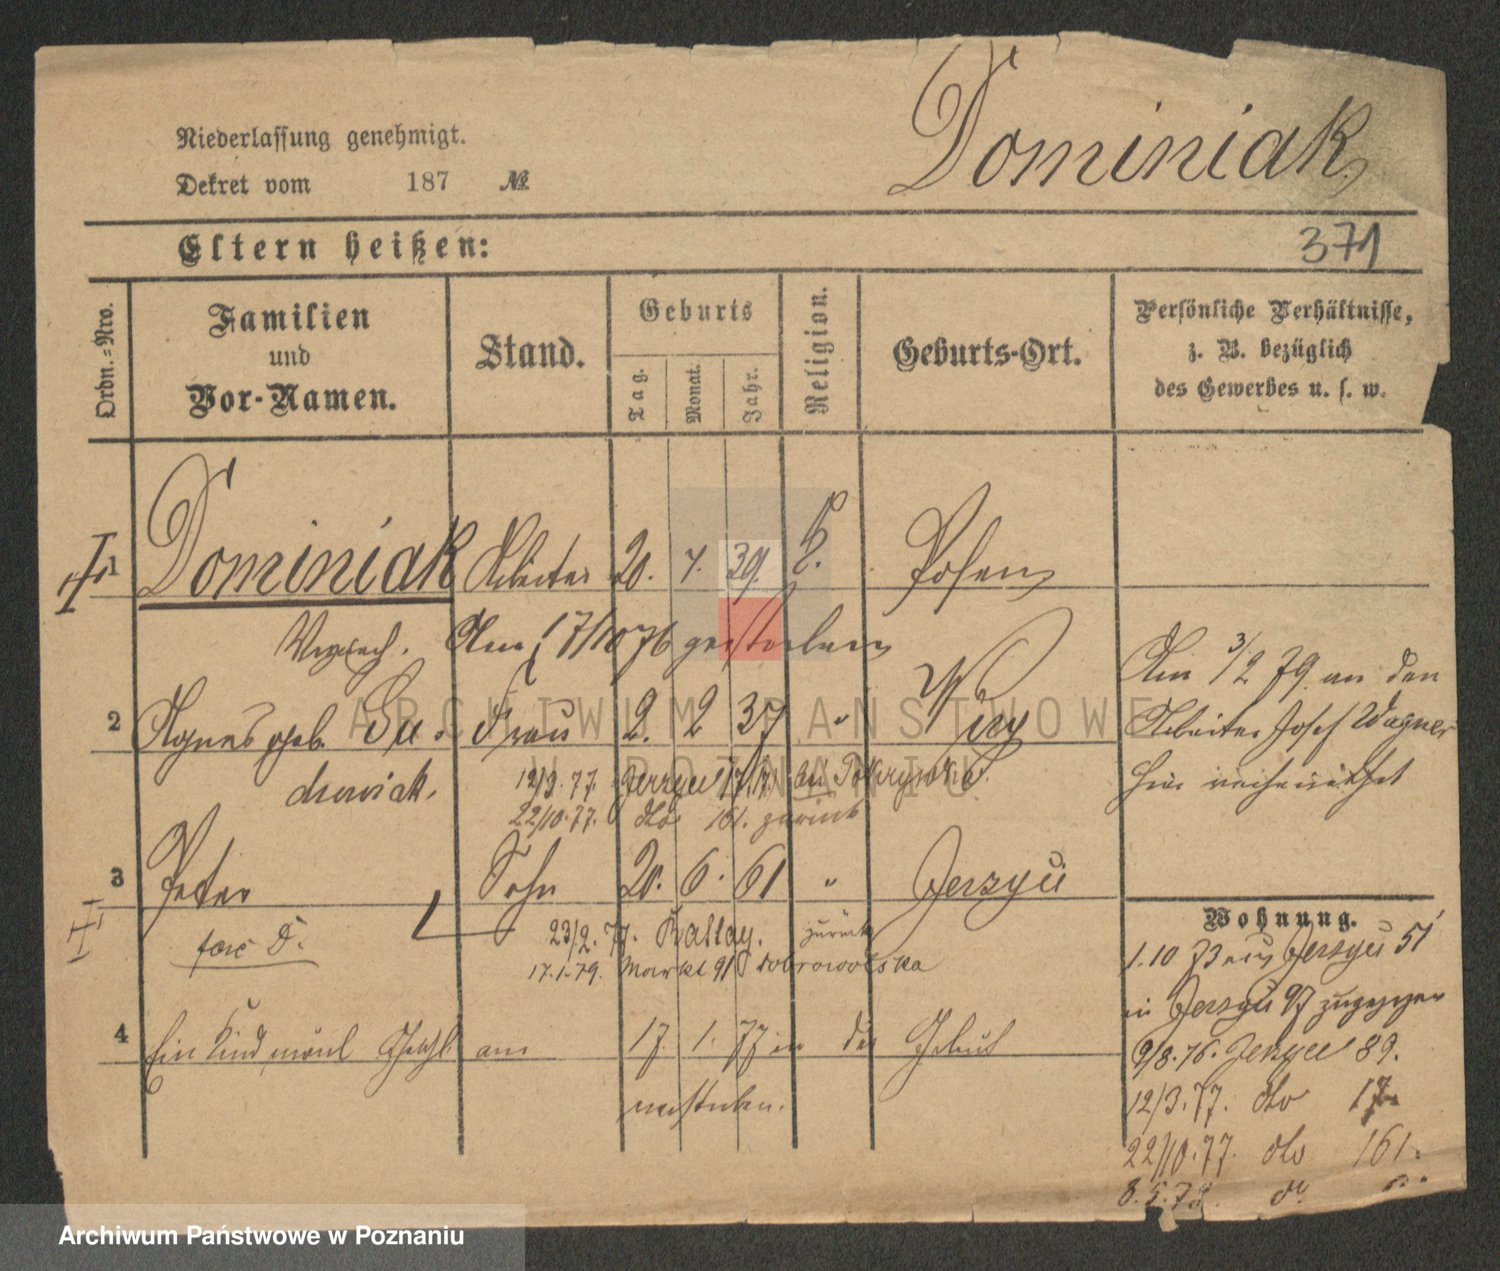 Dominiak
Niederlassung genehmigt.
Dekret vom 187 №
371
Eltern heißen:
Ordn.=Nro.
Familien
und
Vor-Namen.
Stand.
Geburts
Tag.
Monat.
Jahr.
Religion.
Geburts-Ort.
Persönliche Verhältnisse,
z. B. bezüglich
des Gewerbes u. s. w.
1 Dominiak Arbeiter 20. 7. 39. Posen
Am 17/10 76 gestorben
2 Agnes geb. Frau 2. 2 37 " Wiry
Am 3/2 79. an den
Arbeiter Josef Wagner
hier verheirathet
12/3. 77. Jerzyce 17. bei
22/10. 77. dto 161. zurück
3 Peter Sohn 20. 6. 61 " Jerzyce
23/2. 77. zurück
17.1.79. Markt 91 Dobrowolska
4 Ein Kind am 17. 1. 77 in der Geburt
verstorben.
Wohnung.
1.10 73 aus Jerzyce 51
in Jerzyce 97 zugezogen
9/8. 76. Jerzyce 89.
12/3. 77. dto 17
22/10. 77. dto 161.
ARCHIWUM PAŃSTWOWE
W POZNANIU
Archiwum Państwowe w Poznaniu